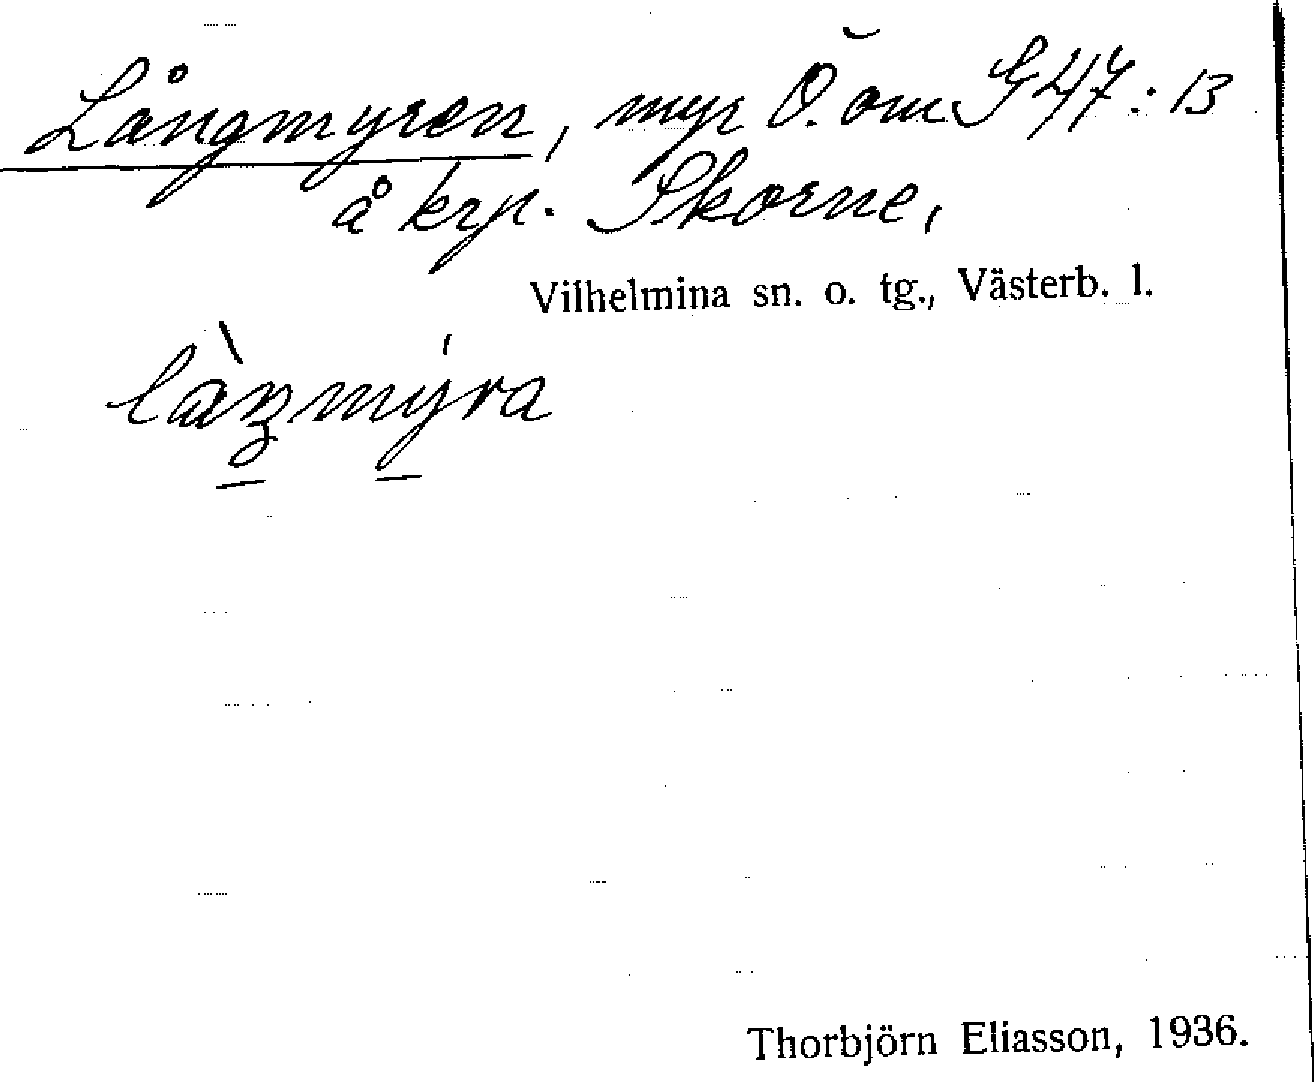 Långmyren, myr Ö. om G47:13
å krp. Skorne,
Vilhelmina sn. o. tg., Västerb. l.
làŋmýra
Thorbjörn Eliasson, 1936.